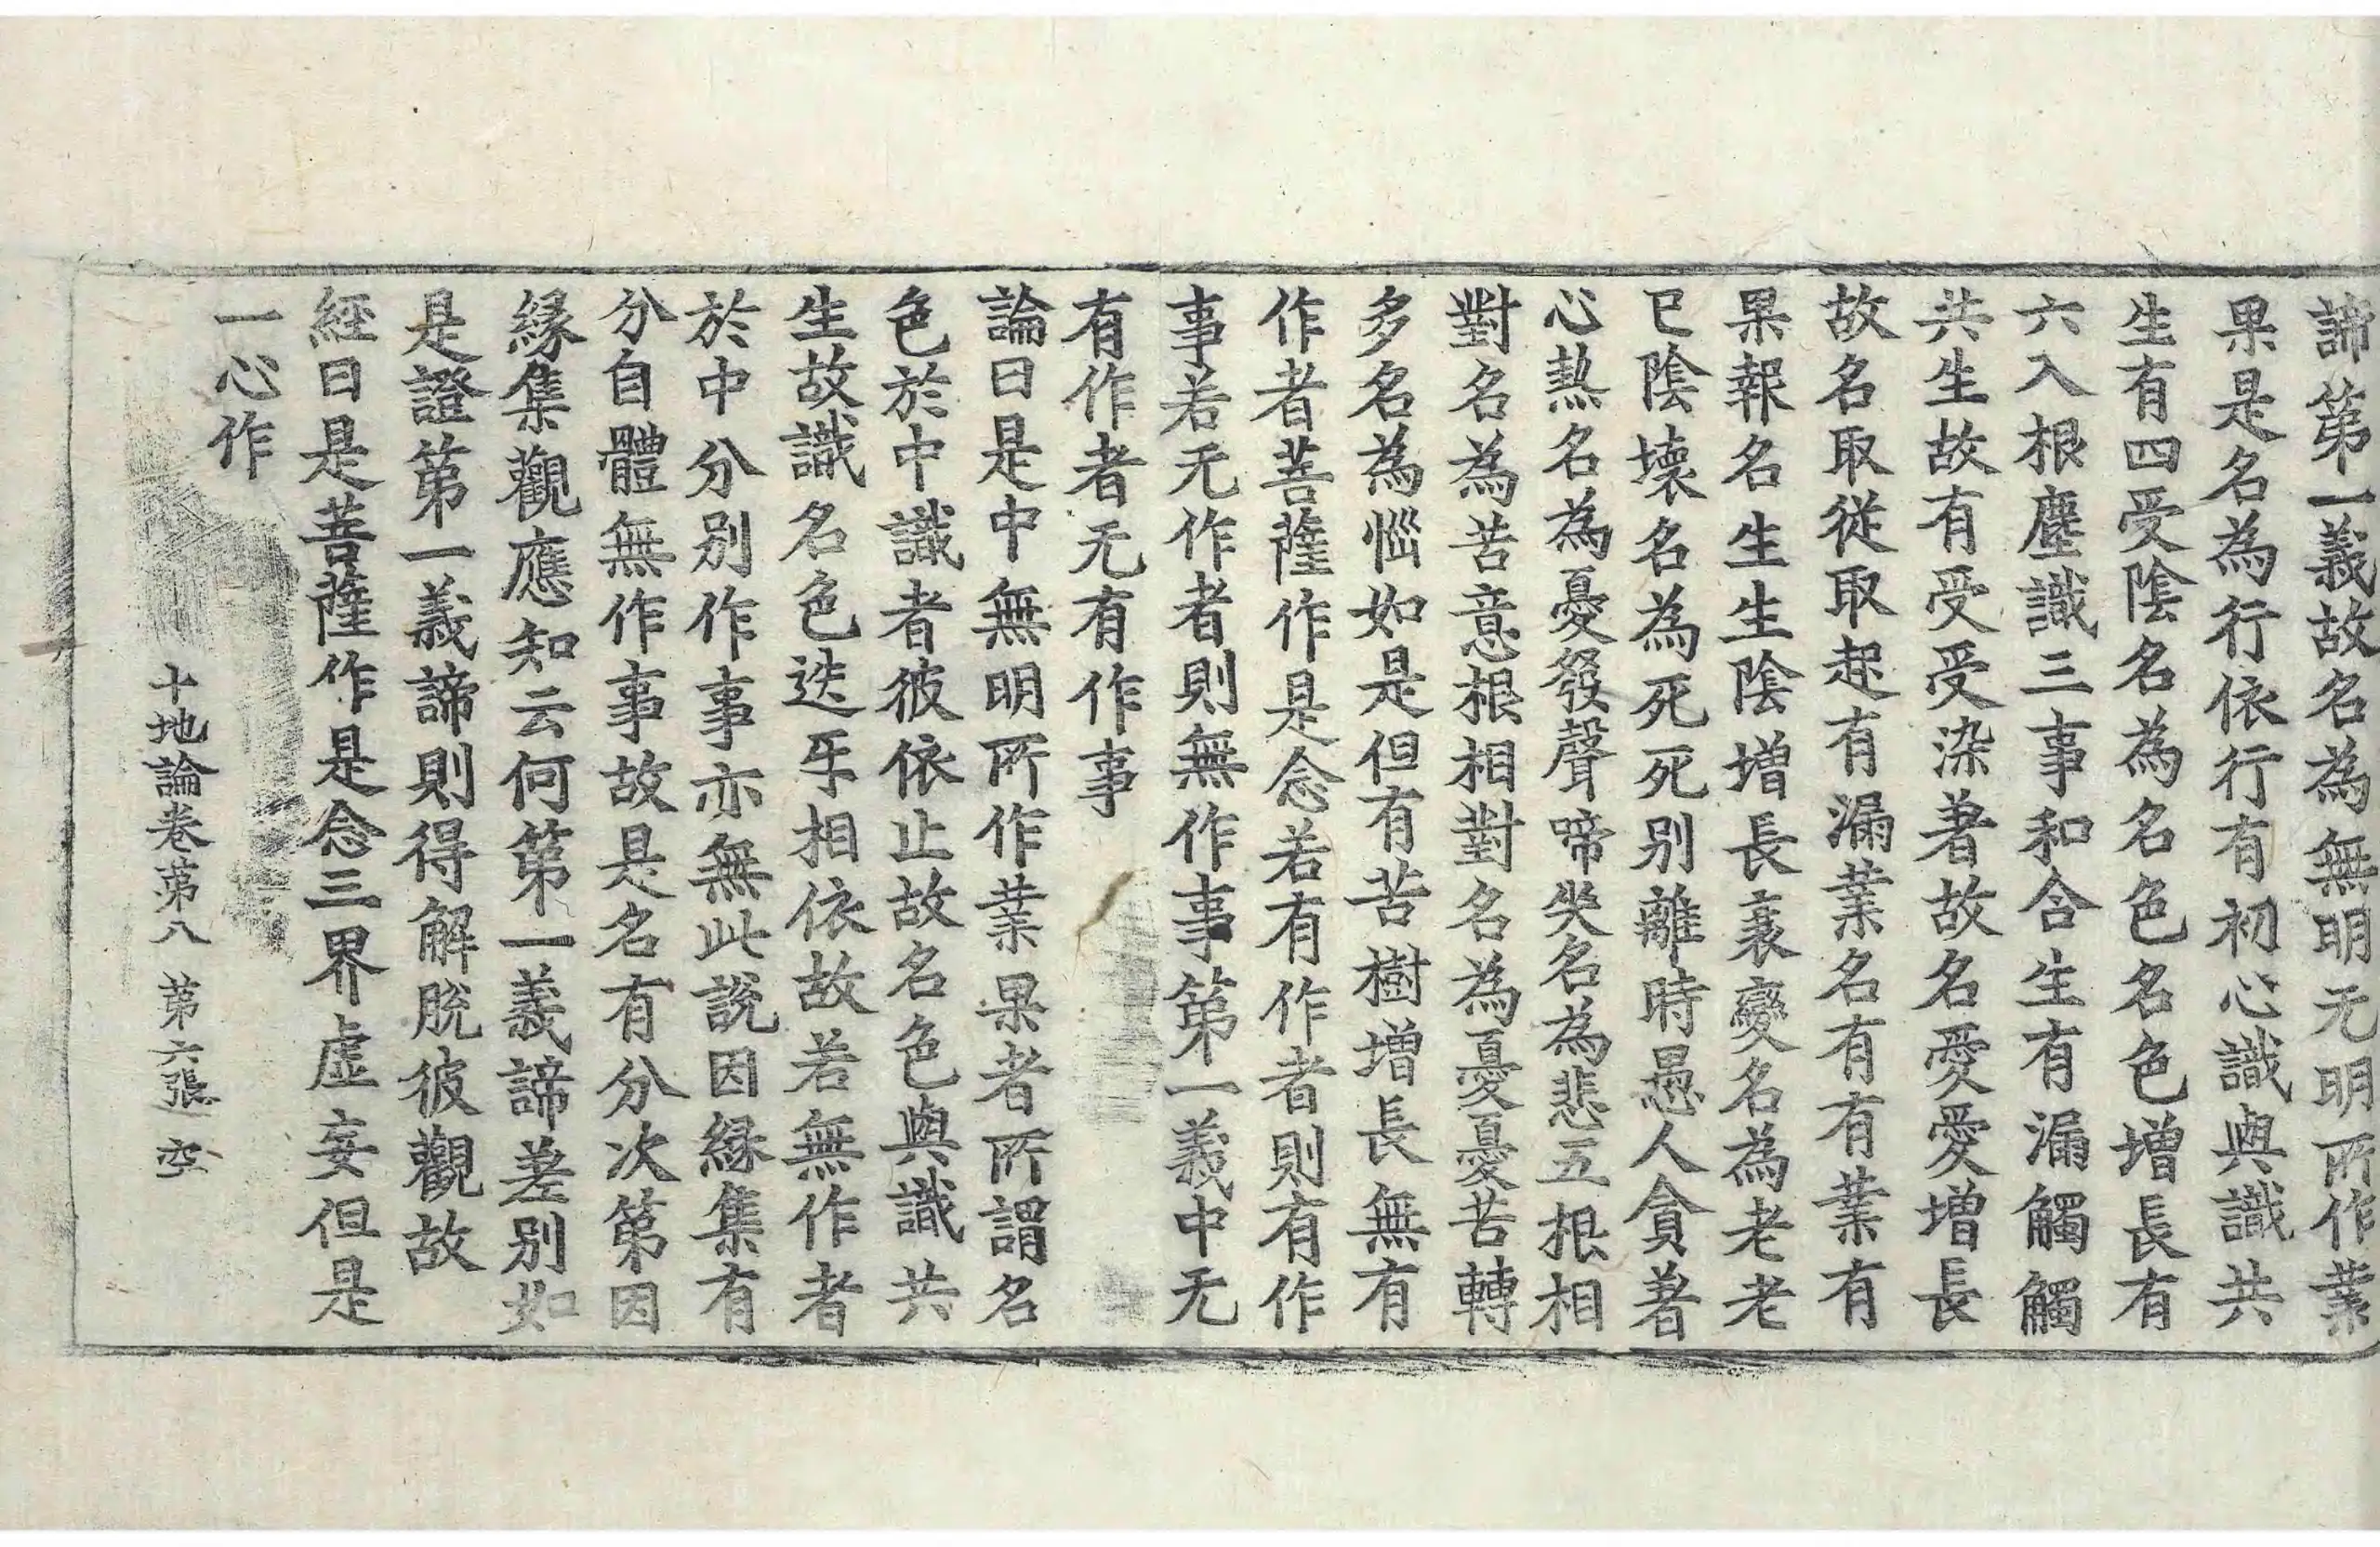 諦第一義故名為無明无明所作業
果是名為行依行有初心識與識共
生有四受陰名為名色名色增長有
六入根塵識三事和合生有漏觸觸
共生故有受受染著故名愛愛增長
故名取從取起有漏業名有有業有
果報名生生陰增長衰變名為老老
已陰壞名為死死别離時愚人貪著
心熱名為憂發聲啼哭名為悲五根相
對名為苦意根相對名為憂憂苦轉
多名為惱如是但有苦樹增長無有
作者菩薩作是念若有作者則有作
事若无作者則無作事第一義中无
有作者无有作事
論曰是中無明所作業果者所謂名
色於中識者彼依止故名色與識共
生故識名色迭㸦相依故若無作者
於中分別作事亦無此說因緣集有
分自體無作事故是名有分次第因
緣集觀應知云何第一義諦差別如
是證第一義諦則得解脫彼觀故
經曰是菩薩作是念三界虛妄但是
一心作
十地論卷第八 第六張 空